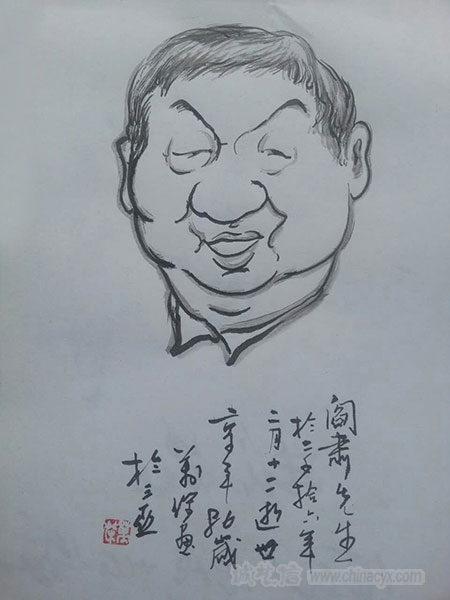 阎肃先生
於二千拾六年
二月十二逝世
享年86歲
画
於三亚
www.chinacyx.com